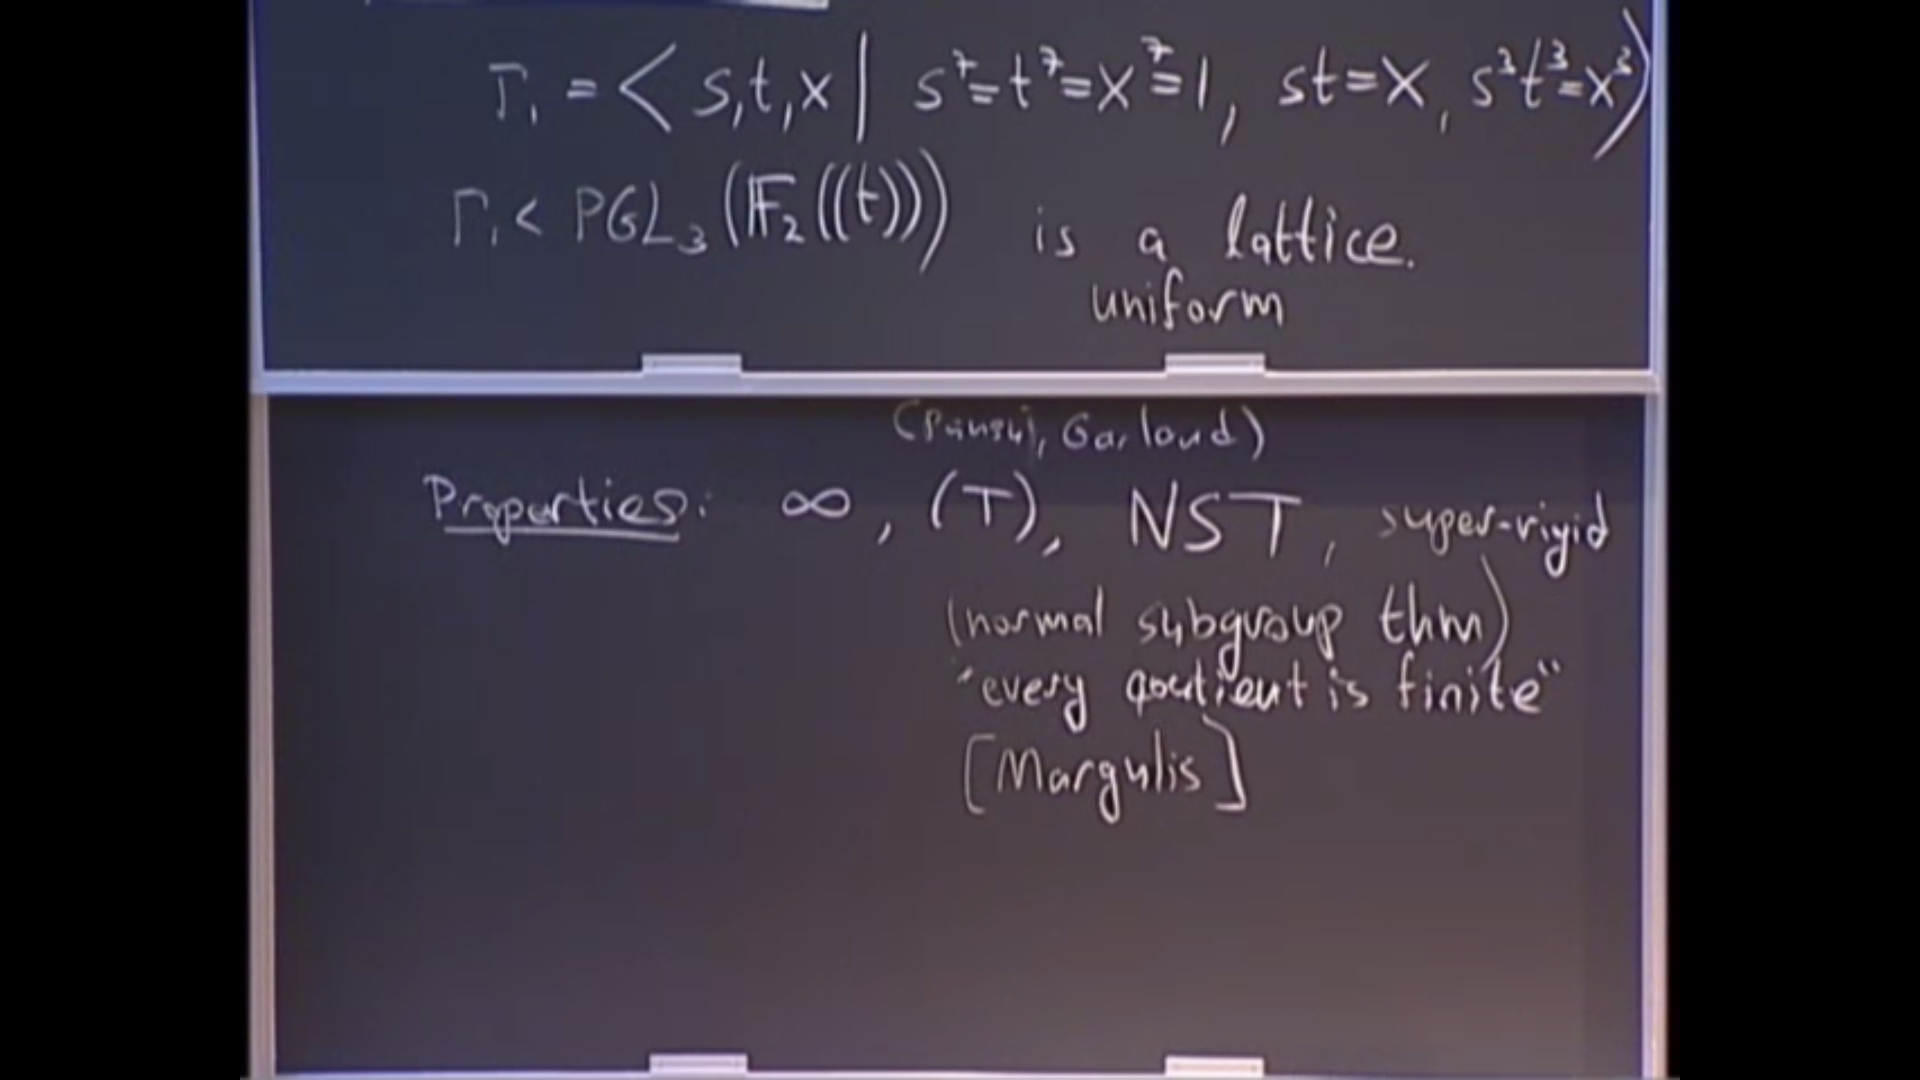 Γ₁ = < s,t,x | s⁷=t⁷=x⁷=1, st=x, s³t³=x³ >
Γ₁ < PGL₃(𝔽₂((t))) is a lattice.
uniform
(Pansu, Garland)
Properties: ∞, (T), NST, super-rigid
(normal subgroup thm)
"every qoutient is finite"
[Margulis]